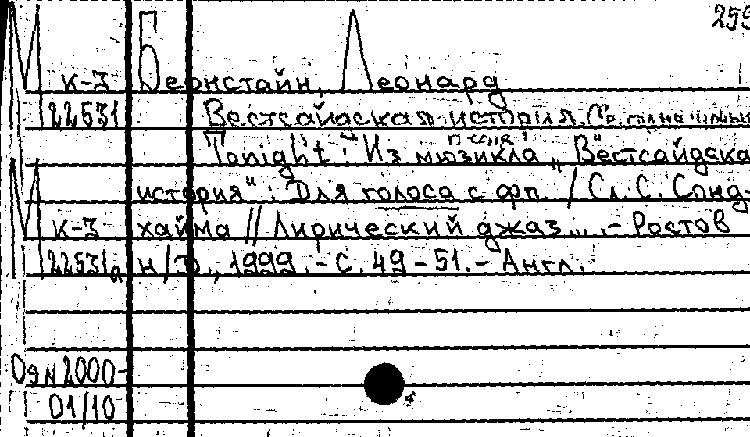 259
К-3 Бернстайн, Леонард
22531 Вестсайдская история.
песня
Tonight : Из мюзикла „Вестсайдска
история“ : Для голоса с фп. / Сл. С. Сонд
К-3 хайма // Лирический джаз... - Ростов
22531а н/Д., 1999. - С. 49-51. - Англ.
2000-
01/10